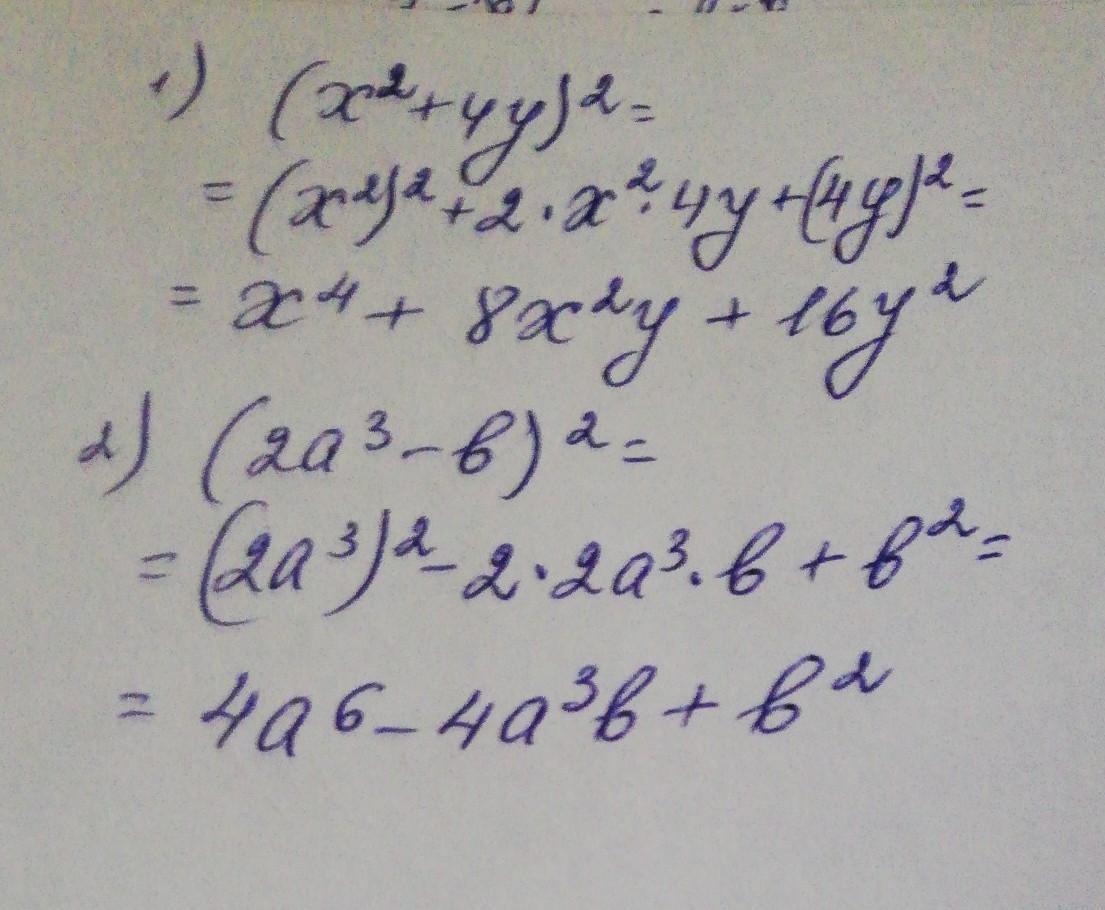 1) (x²+4y)²=
= (x²)²+2·x²·4y+(4y)²=
= x⁴+ 8x²y + 16y²
2) (2a³-b)²=
= (2a³)²-2·2a³·b+b²=
= 4a⁶-4a³b+b²